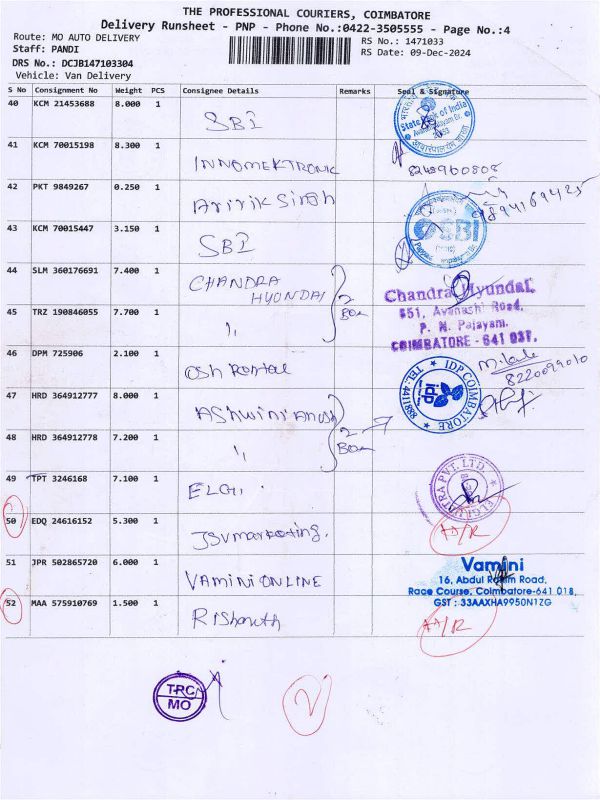 THE PROFESSIONAL COURIERS, COIMBATORE
Delivery Runsheet - PNP - Phone No.:0422-3505555 - Page No.:4
Route: MO AUTO DELIVERY
RS No.: 1471033
Staff: PANDI
RS Date: 09-Dec-2024
DRS No.: DCJB147103304
Vehicle: Van Delivery
S No Consignment No Weight PCS Consignee Details Remarks Seal & Signature
40 KCM 21453688 8.000 1 SBI
State Bank of India
41 KCM 70015198 8.300 1 INNOMEKTRONIC
42 PKT 9849267 0.250 1
43 KCM 70015447 3.150 1 SBI
SBI
44 SLM 360176691 7.400 1 CHANDRA HYUNDAI 2 Box
Chandra Hyundai,
45 TRZ 190846055 7.700 1 "
651, Avanashi Road,
P. N. Palayam,
COIMBATORE - 641 037.
46 DPM 725906 2.100 1 Osh Rental
8220099010
IDP COIMBATORE
47 HRD 364912777 8.000 1 2 Box
48 HRD 364912778 7.200 1 "
49 TPT 3246168 7.100 1 ELGi
50 EDQ 24616152 5.300 1 JSV marketing.
51 JPR 502865720 6.000 1 VAMINI ONLINE
Vamini
16, Abdul Rahim Road,
Race Course, Coimbatore-641 018,
GST : 33AAXHA9950N1ZG
52 MAA 575910769 1.500 1
TRC
MO